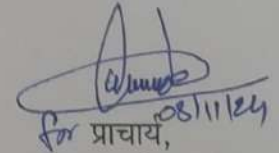 08/11/24
for प्राचार्य,